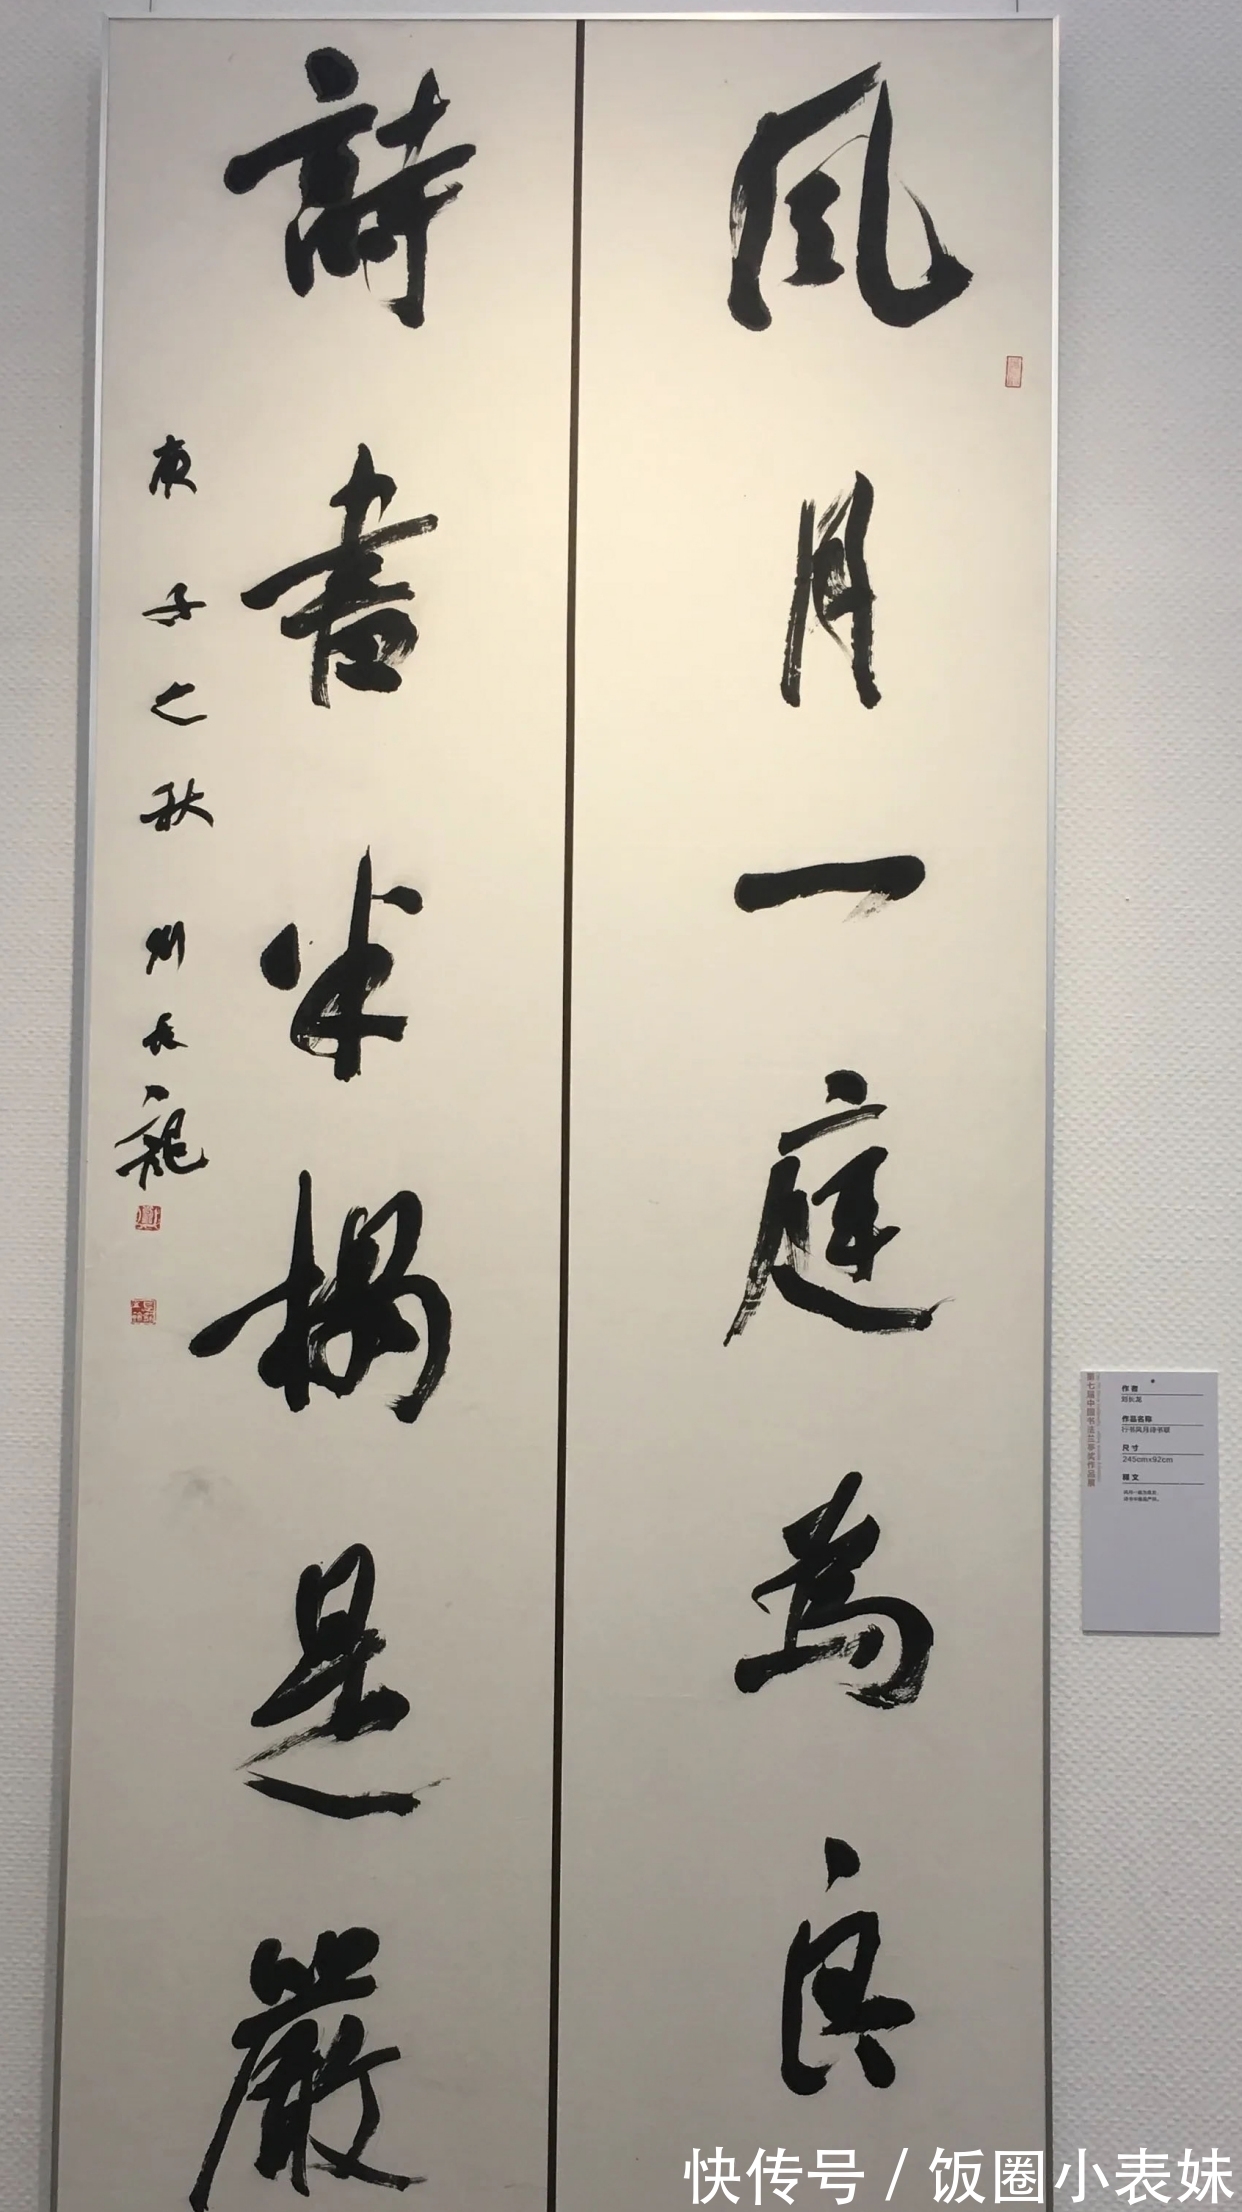 風月一庭為良
詩書半榻是嚴
庚子之秋劉長龍
第七届中国书法兰亭奖作品展
作者
刘长龙
作品名称
行书风月诗书联
尺寸
245cm×92cm
释文
快传号 / 饭圈小表妹